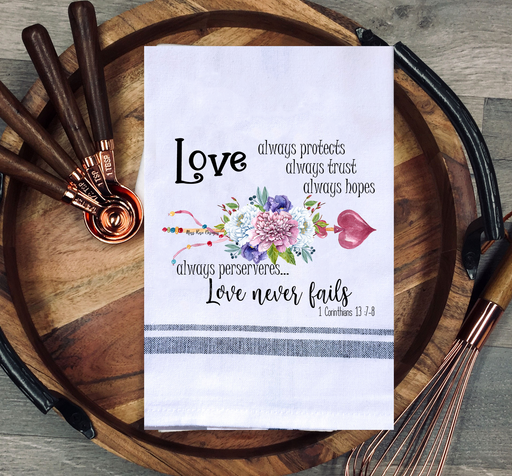 Love
always protects
always trust
always hopes
always perserveres...
Love never fails
1 Corinthians 13 :7-8
1 TBSP
1 TSP